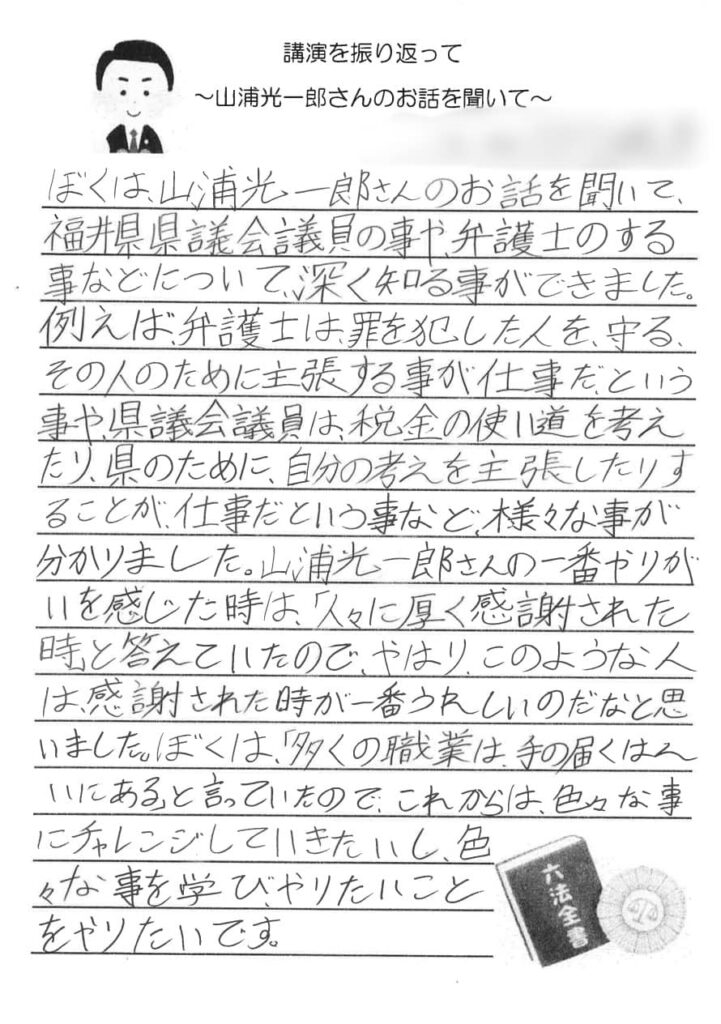 講演を振り返って
～山浦光一郎さんのお話を聞いて～
ぼくは、山浦光一郎さんのお話を聞いて、
福井県県議会議員の事や、弁護士のする
事などについて、深く知る事ができました。
例えば、弁護士は、罪を犯した人を、守る、
その人のために主張する事が仕事だ、という
事や、県議会議員は、税金の使い道を考え
たり、県のために、自分の考えを主張したりす
ることが、仕事だという事など、様々な事が
分かりました。山浦光一郎さんの一番やりが
いを感じた時は、「人々に厚く感謝された
時」と答えていたので、やはり、このような人
は、感謝された時が一番うれしいのだなと思
いました。ぼくは、「多くの職業は、手の届くはん
いにある」と言っていたので、これからは、色々な事
にチャレンジしていきたいし、色
々な事を学び、やりたいこと
をやりたいです。
六法全書